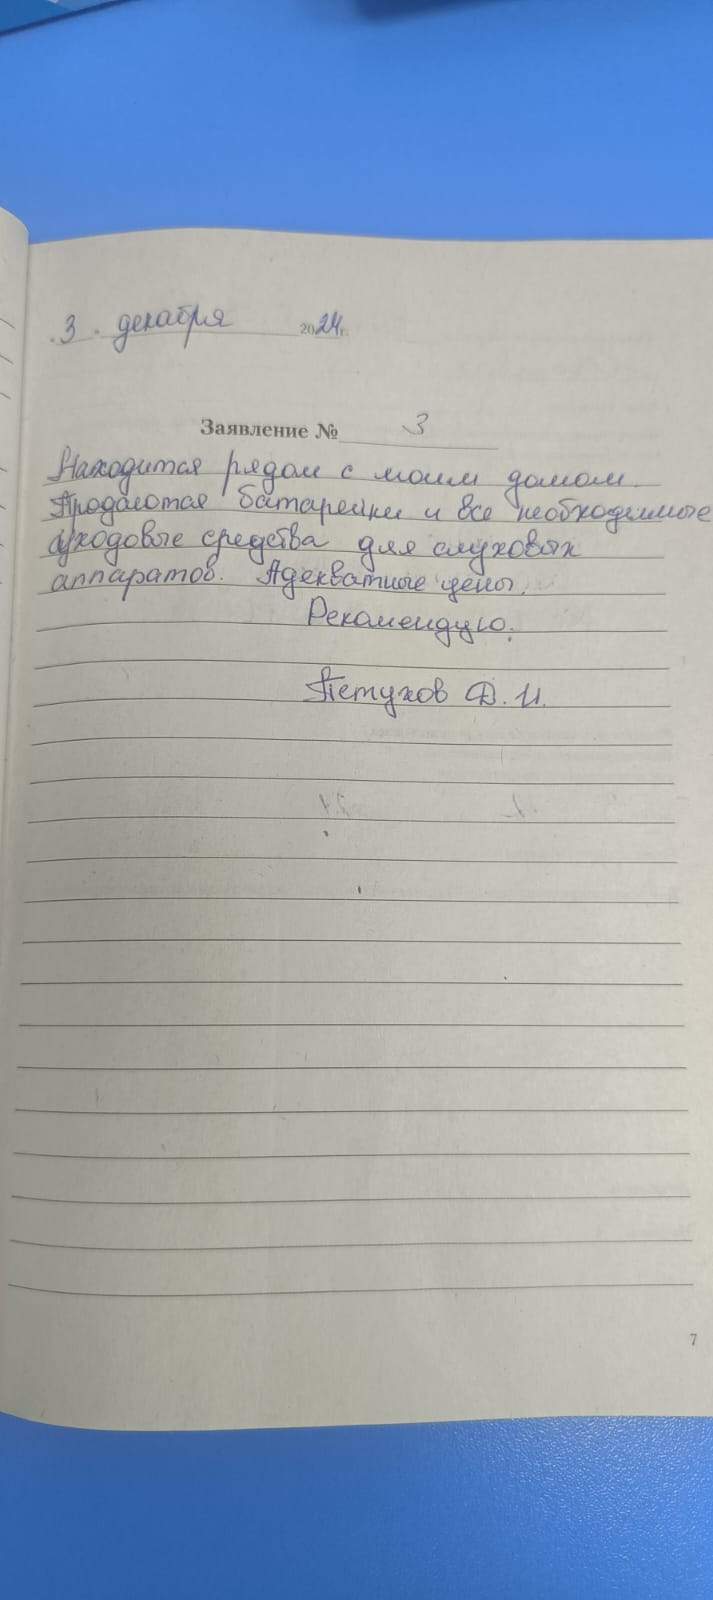 3. декабря 2024г.
Заявление № 3
Находится рядом с моим домом.
Продаются батарейки и все необходимые
уходовые средства для слуховых
аппаратов. Адекватные цены.
Рекомендую.
Петухов Д.И.
7